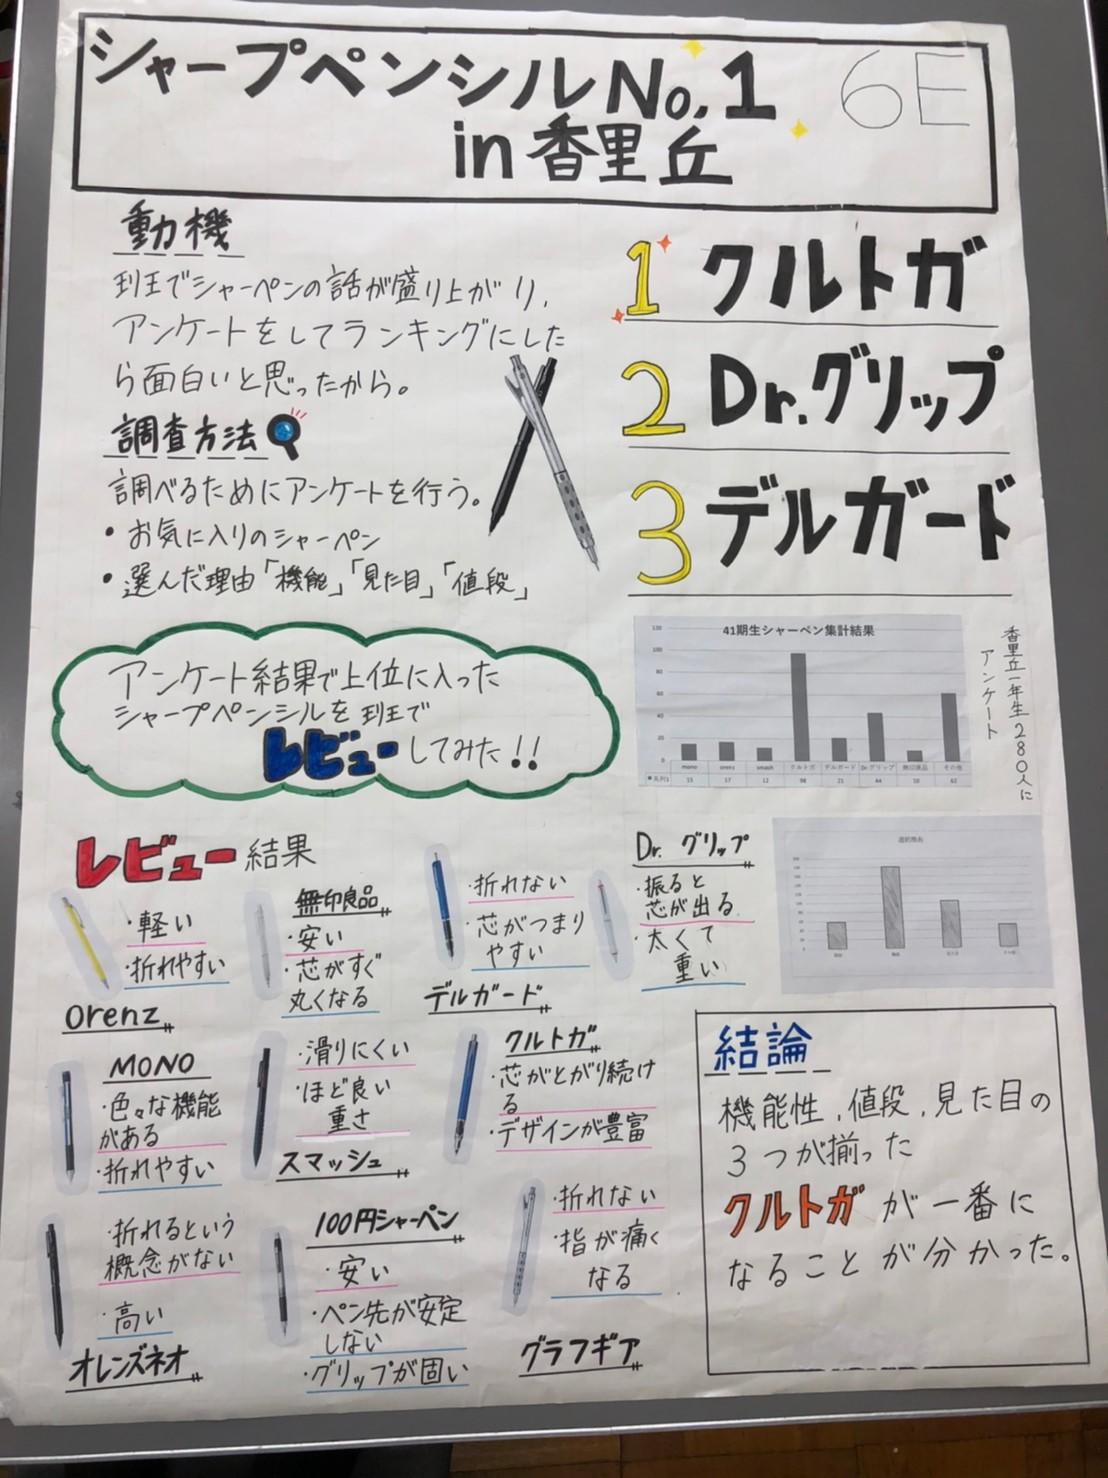 シャープペンシルNo.1
in 香里丘
6E
動機
班でシャーペンの話が盛り上がり、
アンケートをしてランキングにした
ら面白いと思ったから。
調査方法
調べるためにアンケートを行う。
・お気に入りのシャーペン
・選んだ理由「機能」「見た目」「値段」
1 クルトガ
2 Dr.グリップ
3 デルガード
アンケート結果で上位に入った
シャープペンシルを班で
レビューしてみた!!
41期生シャーペン集計結果
120
100
80
60
40
20
0
mono orenz smash クルトガ デルガード Dr.グリップ 無印良品 その他
系列1 15 17 12 98 21 44 10 62
香里丘一年生280人に
アンケート
レビュー結果
・軽い
・折れやすい
orenz
無印良品
・安い
・芯がすぐ
丸くなる
・折れない
・芯がつまり
やすい
デルガード
Dr. グリップ
・振ると
芯が出る
・太くて
重い
MONO
・色々な機能
がある
・折れやすい
・滑りにくい
・ほど良い
重さ
スマッシュ
クルトガ
・芯がとがり続け
る
・デザインが豊富
・折れるという
概念がない
・高い
オレンズネオ
100円シャーペン
・安い
・ペン先が安定
しない
・グリップが固い
・折れない
・指が痛く
なる
グラフギア
結論
機能性、値段、見た目の
3つが揃った
クルトガが一番に
なることが分かった。